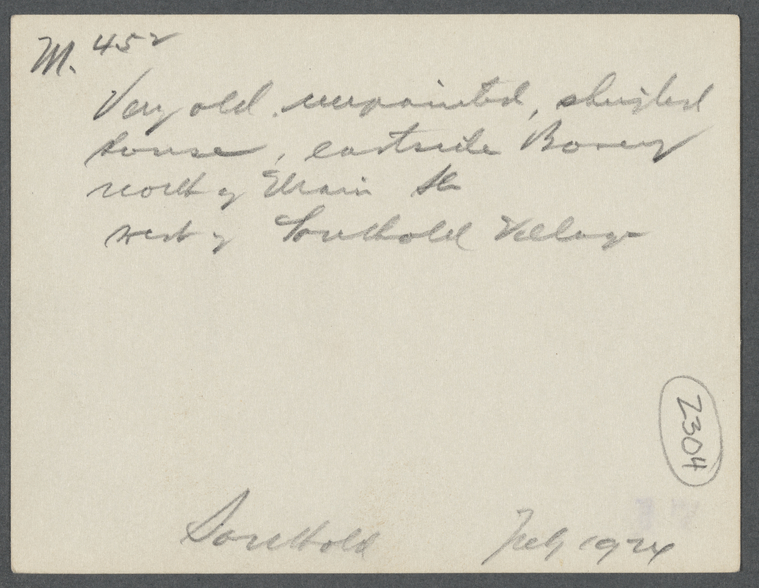 M. 452
Very old unpainted, shingled
house, east side Bowery
north of Main St
west of Southold Village
2304
Southold 1924